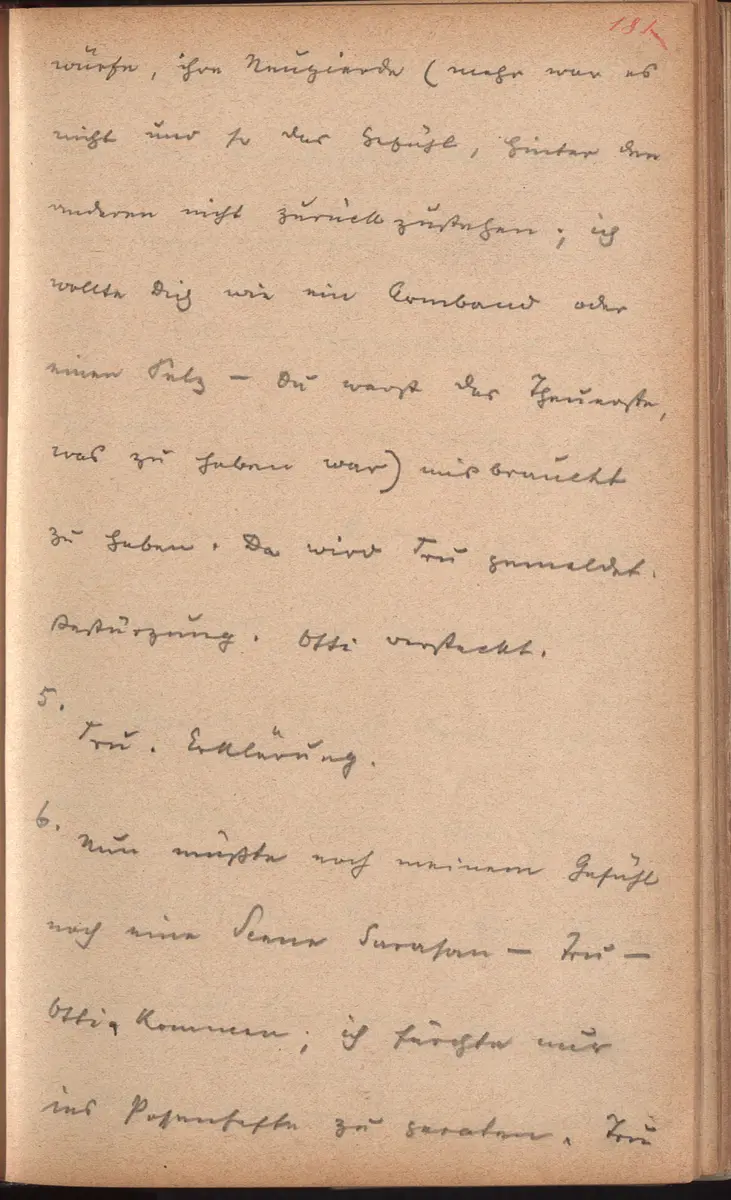 181
würfe, ihre Neugierde (mehr war es
nicht und so das Gefühl, hinter den
anderen nicht zurückzustehen; ich
wollte Dich wie ein Armband oder
einen Pelz – Du warst das Theuerste,
was zu haben war) misbraucht
zu haben. Da wird Tru gemeldet.
Bestürzung. Otti versteckt.
5.
Tru. Erklärung.
6.
Nun müßte nach meinem Gefühl
noch eine Scene Sarasan – Tru –
Otti kommen; ich fürchte nur
ins Possenhafte zu geraten. Tru